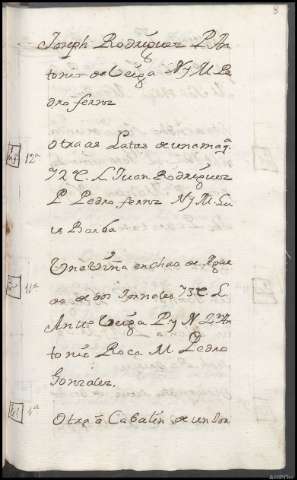 8
Joseph Rodriguez P. An
tonio de Veiga N y M Pe
dro ferroz
12ª
Otra as Latas de una mag.ª
72 C. L. Juan Rodriguez
P. Pedro ferroz N y M. Lu
is Barba
11ª
Una Viña en chao de
de dos Jornales 73 C L.
Antº Veiga P y N
tonio Roca M. Pedro
Gonzalez.
4ª
Otra ô Cabalin de un Jor